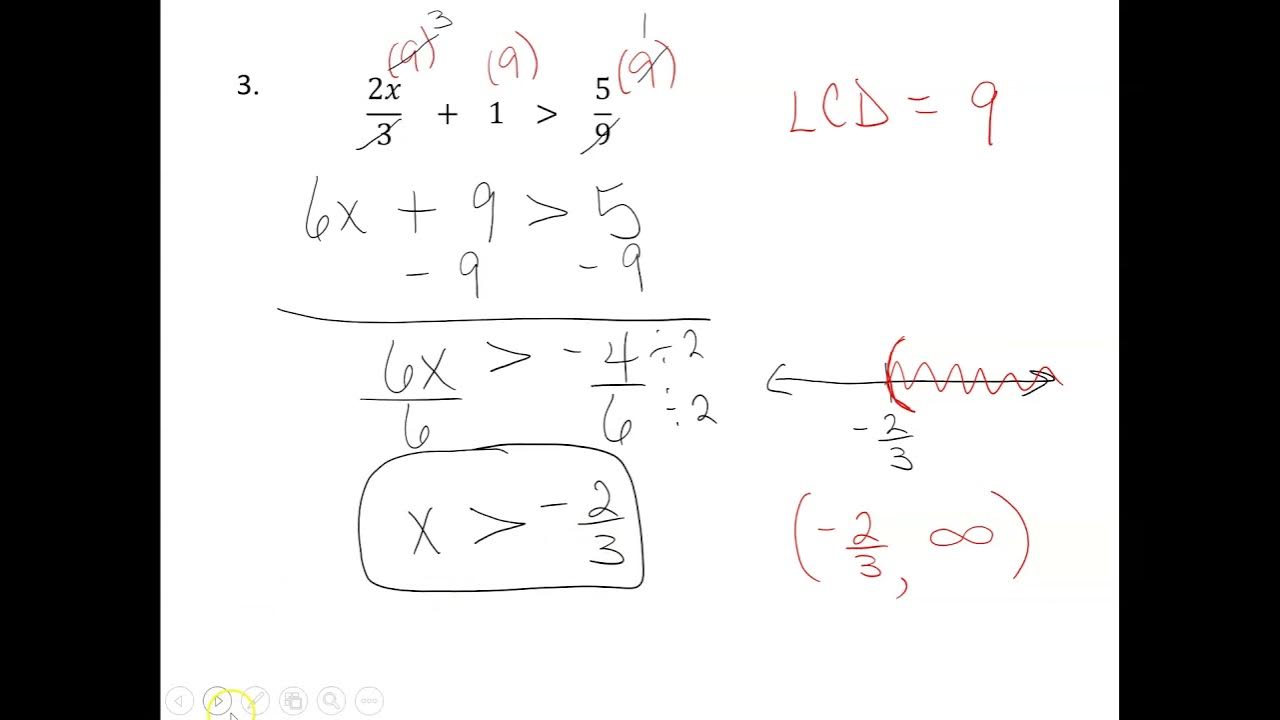 (9) 3 (9) (9) 1
3. 2x/3 + 1 > 5/9
LCD = 9
6x + 9 > 5
- 9 - 9
6x/6 > -4/6 ÷2 ÷2
x > -2/3
-2/3
(-2/3, ∞)